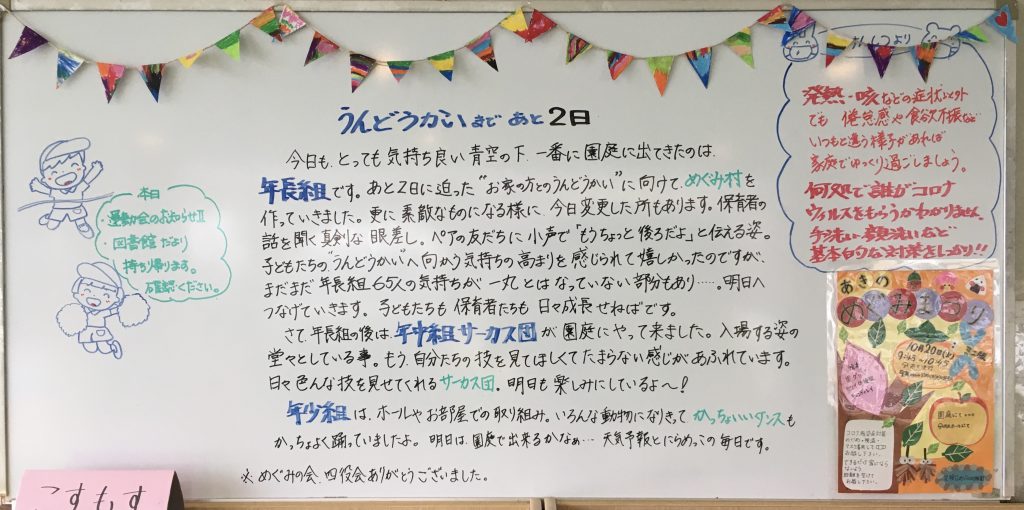 うんどうかいまで あと 2日
今日も、とっても気持ち良い青空の下、一番に園庭に出てきたのは、
年長組です。あと2日に迫った“お家の方とのうんどうかい”に向けて、めぐみ村を
作っていきました。更に素敵なものになる様に、今日変更した所もあります。保育者の
話を聞く真剣な眼差し。ペアの友だちに小声で「もうちょっと後ろだよ」と伝える姿。
子どもたちの“うんどうかい”へ向かう気持ちの高まりを感じられて嬉しかったのですが、
まだまだ年長組65人の気持ちが一丸とはなっていない部分もあり……。明日へ
つなげていきます。子どもたちも保育者たちも日々成長せねばです。
さて、年長組の後は、年中組サーカス団が園庭にやって来ました。入場する姿の
堂々としている事。もう、自分たちの技を見てほしくてたまらない感じがあふれています。
日々色んな技を見せてくれるサーカス団。明日も楽しみにしているよ～!
年少組は、ホールやお部屋での取り組み。いろんな動物になりきってかっちょいいダンスも
かっちょよく踊っていましたよ。明日は、園庭で出来るかなぁ…天気予報とにらめっこの毎日です。
※めぐみの会、四役会、ありがとうございました。
本日
・運動会のお知らせⅡ
・図書館だより
持ち帰ります。
確認ください。
発熱・咳などの症状以外
でも 倦怠感や食欲不振など
いつもと違う様子があれば
家庭でゆっくり過ごしましょう。
何処で誰がコロナ
ウィルスをもらうかわかりません。
手洗い・顔洗いなど
基本的な対策をしっかり!!
あきの
めぐみまつり
10月20日(火)
9:45～10:45
園庭にて
こすもす